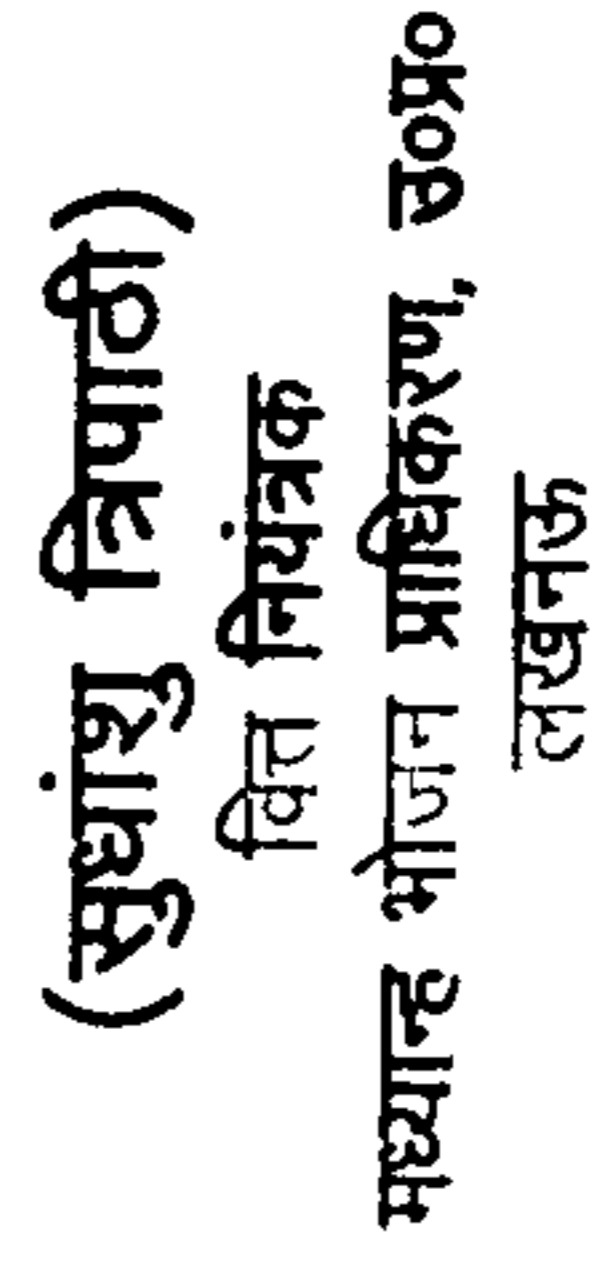 (सुधांशु त्रिपाठी)
वित्त नियंत्रक
मध्यान्ह भोजन प्राधिकरण, उ०प्र०
लखनऊ